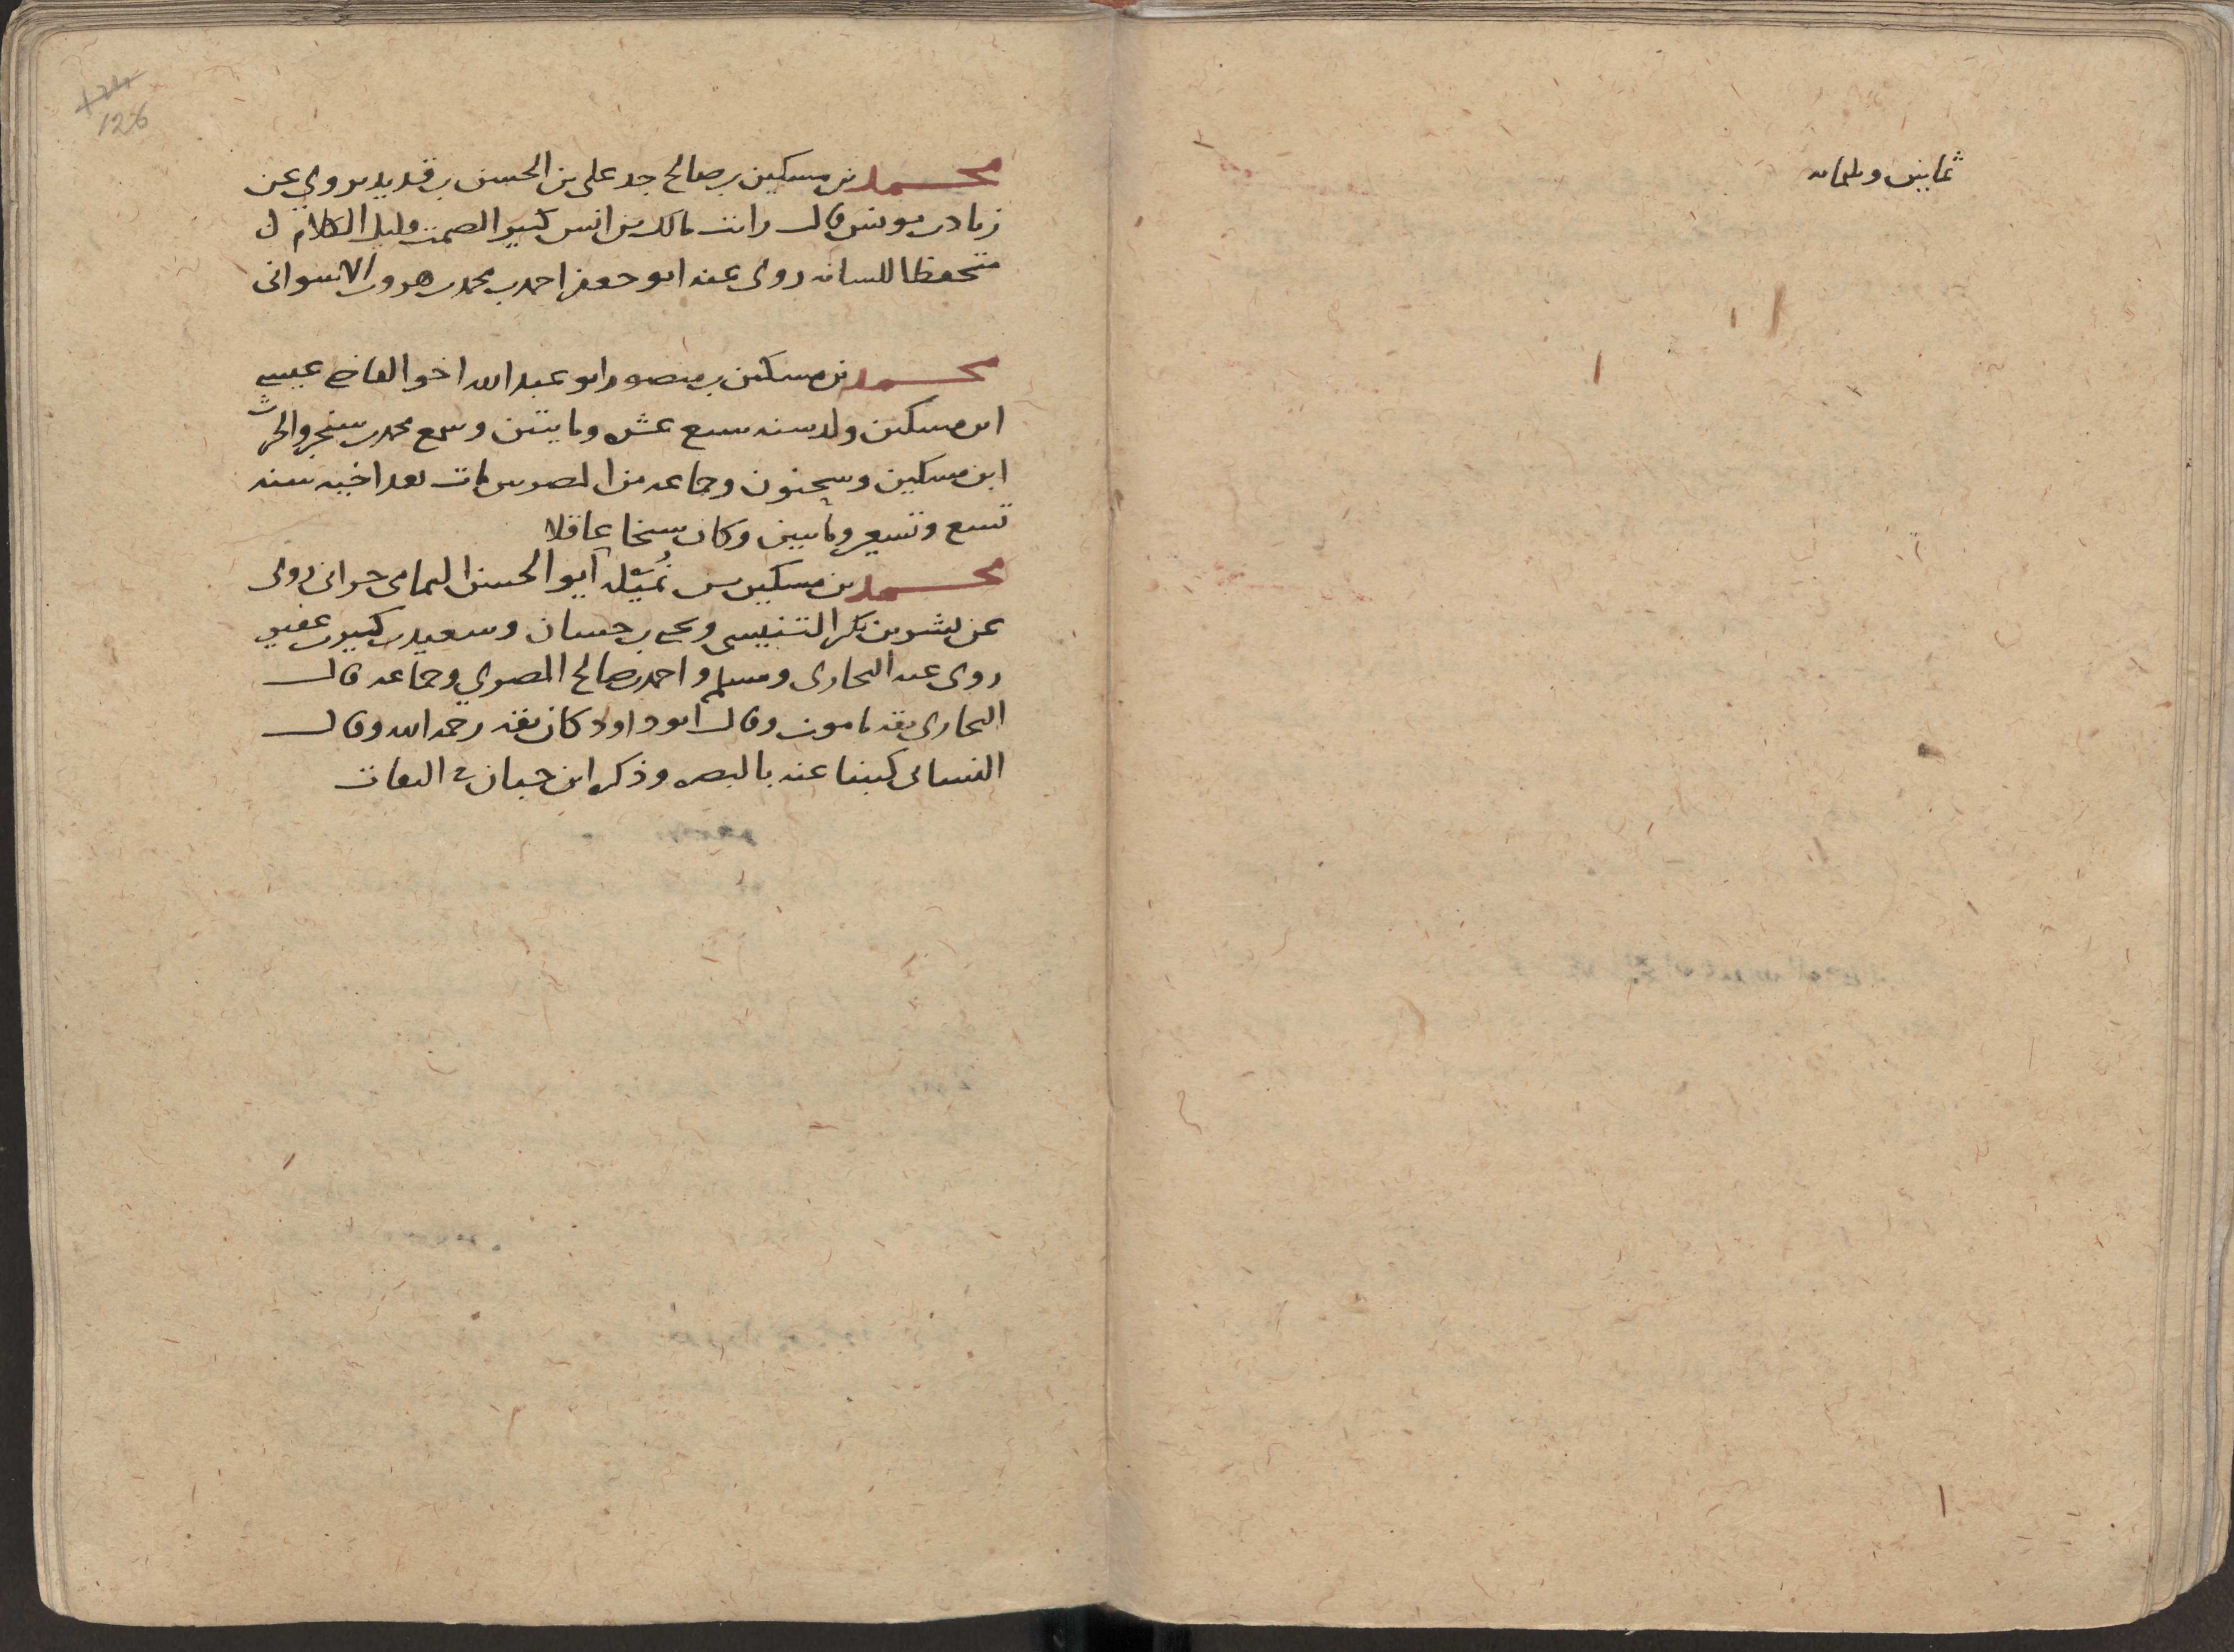 ثمانين وثلثمائه
126
محمد بن مسكين بن صالح جد على بن الحسن بن قديد يروي عن
زياد بن يونس قال رايت مالك بن انس كثير الصمت قليل الكلام
متحفظا للسانه روى عنه ابو جعفر احمد بن محمد بن هرون الاسوانى
محمد بن مسكين بن منصور ابو عبد الله اخو القاضى عيسى
ابن مسكين ولد سنه سبع عشره ومايتين وسمع محمد بن سنجر والحرث
ابن مسكين وسحنون وجماعه من المصريين مات بعد اخيه سنه
تسع وتسعين ومايتين وكان شيخا عاقلا
محمد بن مسكين بن نُمَيْله ابو الحسن اليمامى حرانى روى
عن بشر بن بكر التنيسى ويحيى بن حسان وسعيد بن كثير بن عفير
روى عنه البخارى ومسلم واحمد بن صالح المصري وجماعه قال
البخارى ثقه مامون وقال ابو داود كان ثقه رحمه الله وقال
النسائى كتبنا عنه بالبصره وذكره ابن حبان في الثقات